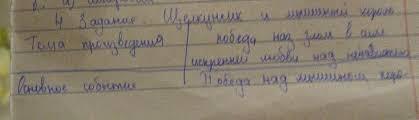 4 Задание. Щелкунчик и мышиный король
Тема произведения победа над злом в силе
искренней любви над ненавистью
Основное событие Победа над мышиным коро-